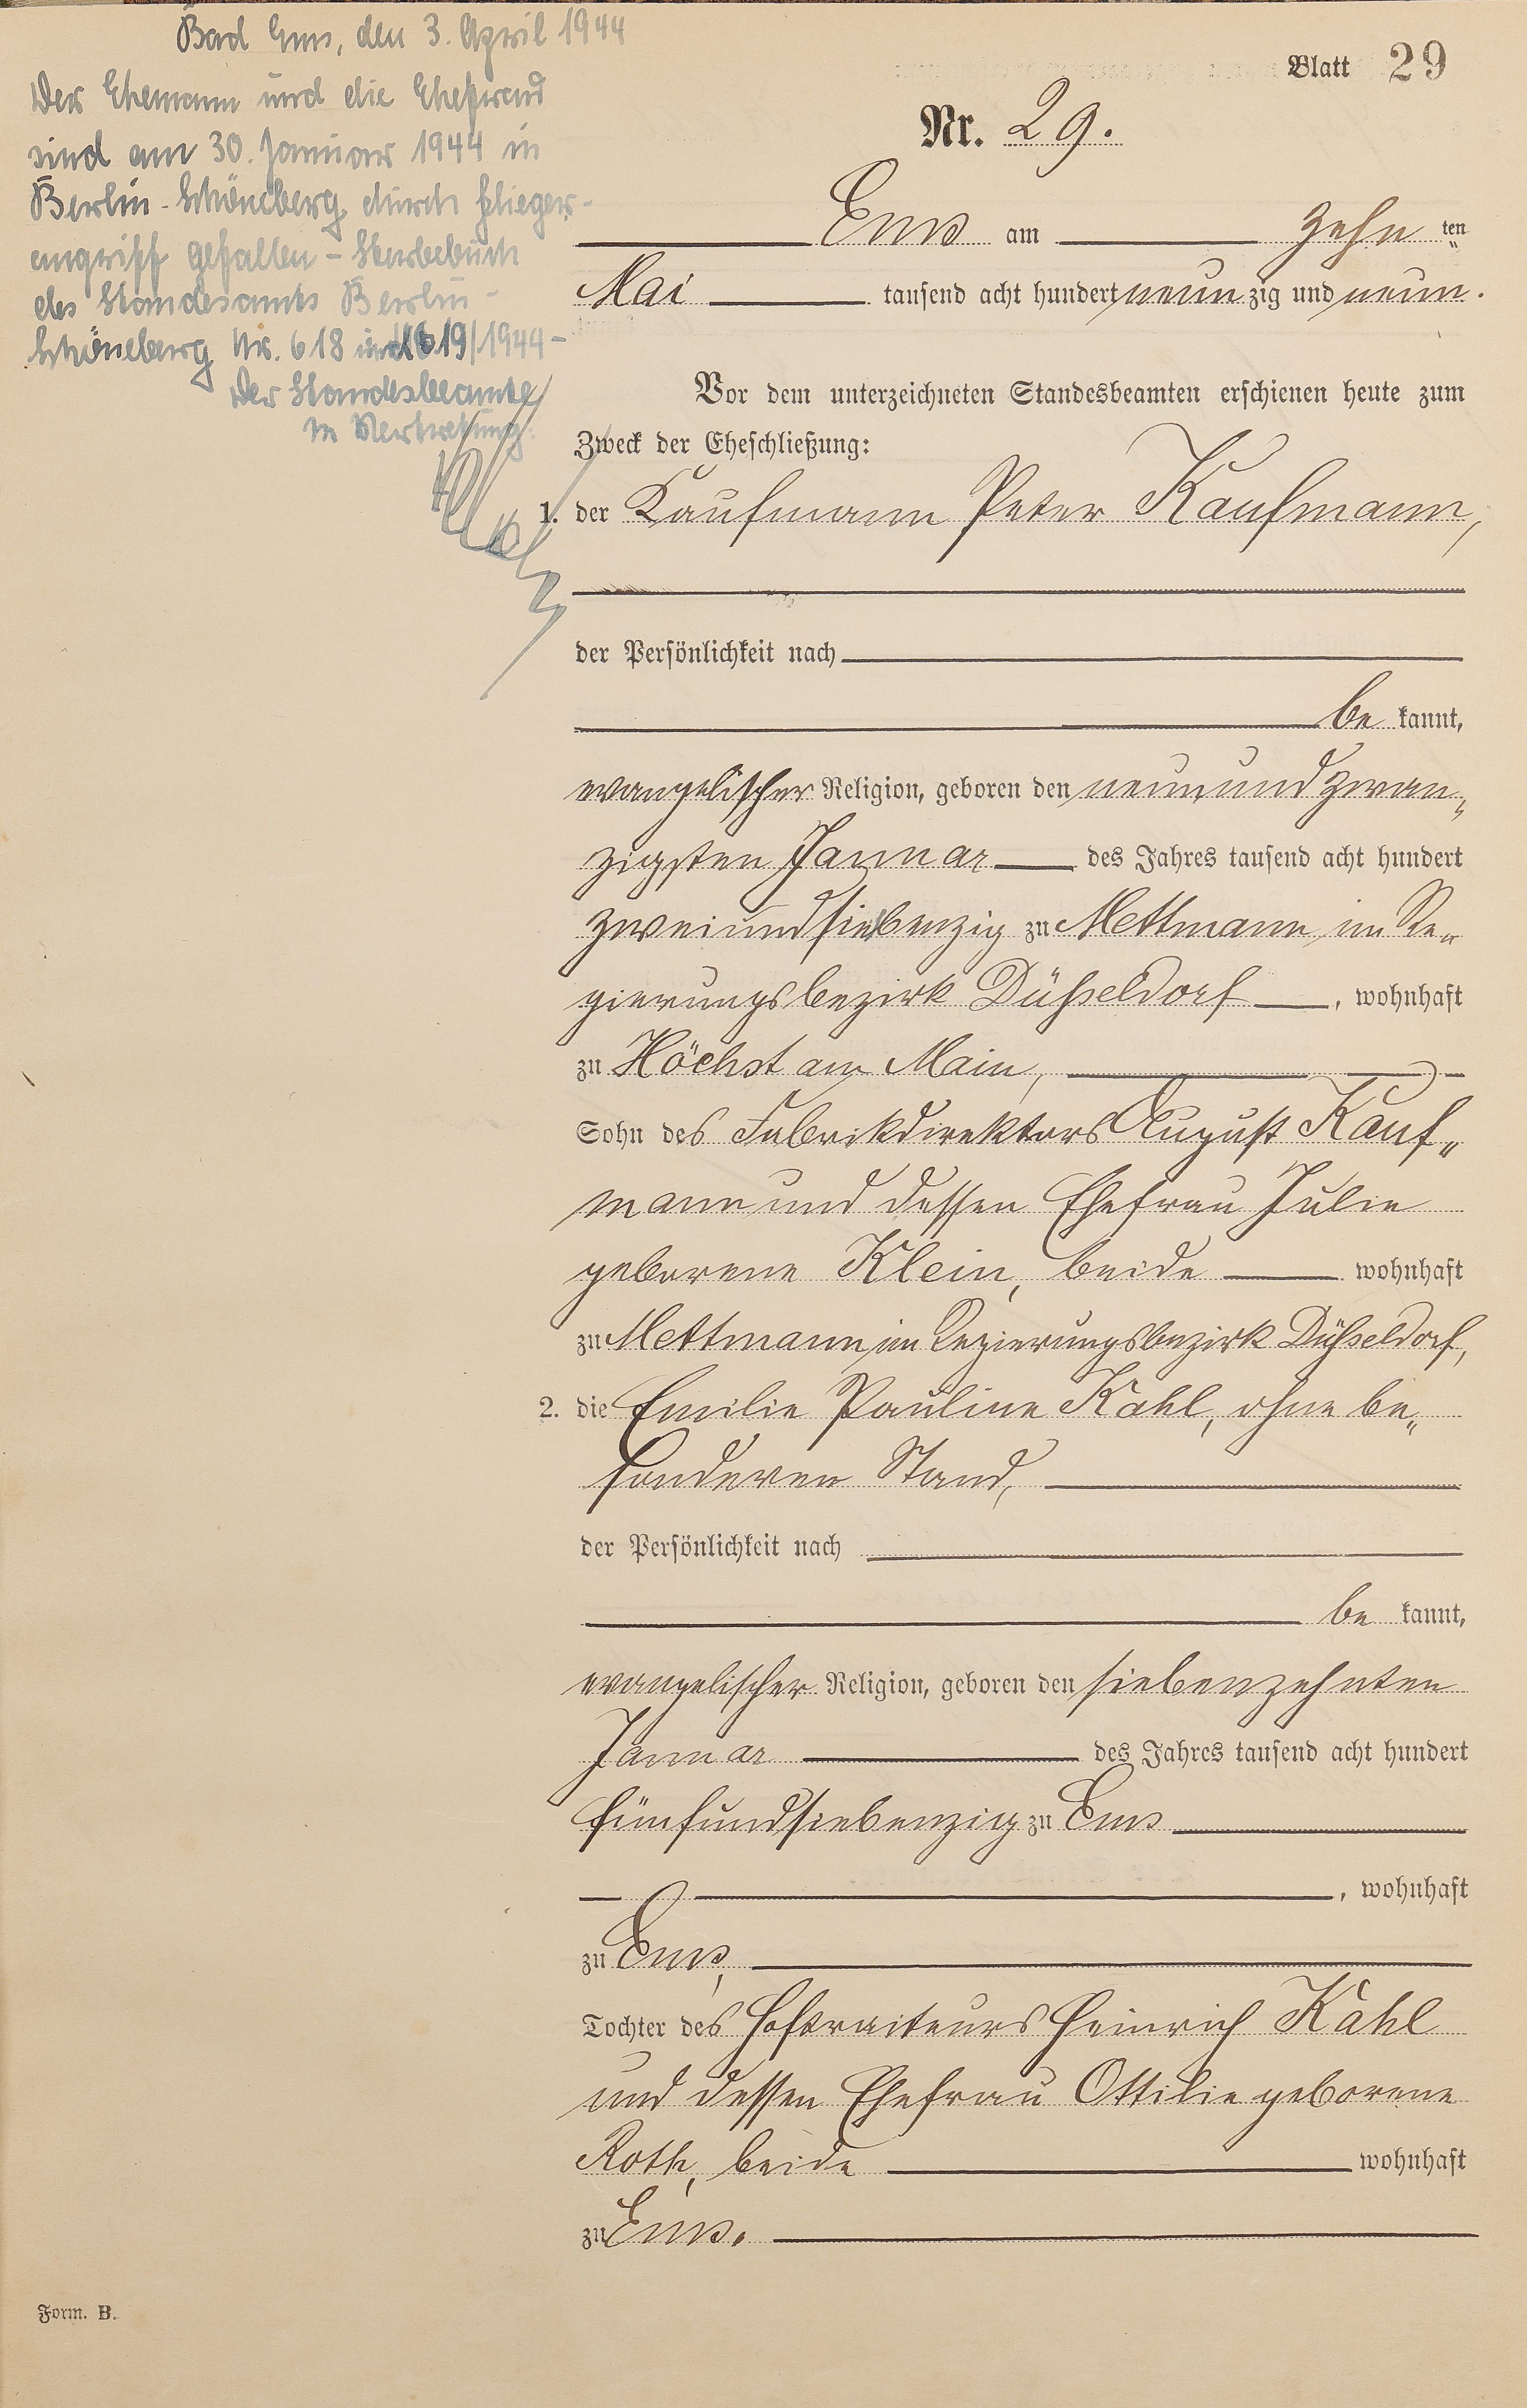 Bad Ems, den 3. April 1944
Der Ehemann und die Ehefrau
sind am 30. Januar 1944 in
Berlin-Schöneberg durch Flieger-
angriff gefallen - Sterbebuch
des Standesamts Berlin-
Schöneberg Nr. 618 und 619/1944 -
Der Standesbeamte
In Vertretung:
Blatt 29
Nr. 29.
Ems am zehn ten
Mai tausend acht hundert neunzig und neun.
Vor dem unterzeichneten Standesbeamten erschienen heute zum
Zweck der Eheschließung:
1. der Kaufmann Peter Kaufmann,
der Persönlichkeit nach
be kannt,
evangelischer Religion, geboren den neunundzwan„
zigsten Januar des Jahres tausend acht hundert
zweiundsiebenzig zu Mettmann im Re„
gierungsbezirk Düsseldorf, wohnhaft
zu Höchst am Main,
Sohn des Fabrikdirektors August Kauf„
mann und dessen Ehefrau Julie
geborene Klein, beide wohnhaft
zu Mettmann im Regierungsbezirk Düsseldorf,
2. die Emilie Pauline Kahl, ohne be„
sonderen Stand,
der Persönlichkeit nach
be kannt,
evangelischer Religion, geboren den siebenzehnten
Januar des Jahres tausend acht hundert
fünfundsiebenzig zu Ems
, wohnhaft
zu Ems,
Tochter des Hoftraiteurs Heinrich Kahl
und dessen Ehefrau Ottilie geborene
Roth, beide wohnhaft
zu Ems.
Form. B.